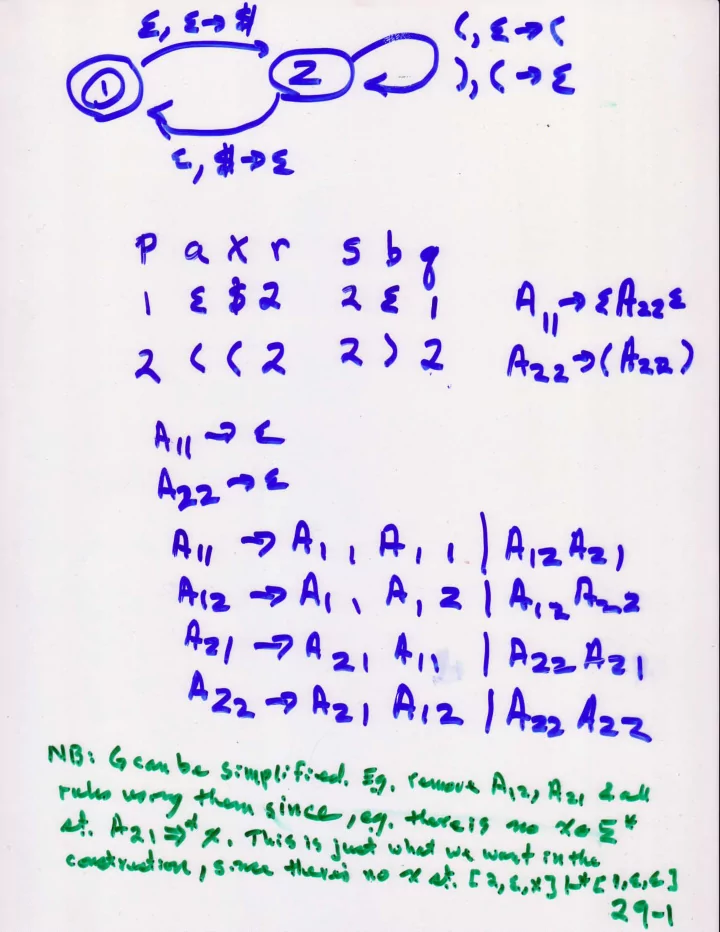 ε, ε→$
(, ε→(
1
2
), (→ε
ε, $→ε
p a x r s b q
1 ε $ 2 2 ε 1 A₁₁→εA₂₂ε
2 ( ( 2 2 ) 2 A₂₂→(A₂₂)
A₁₁→ε
A₂₂→ε
A₁₁→A₁₁A₁₁|A₁₂A₂₁
A₁₂→A₁₁A₁₂|A₁₂A₂₂
A₂₁→A₂₁A₁₁|A₂₂A₂₁
A₂₂→A₂₁A₁₂|A₂₂A₂₂
NB: G can be simplified. Eg. remove A₁₂, A₂₁ & all
rules using them since, eg. there is no x∈Σ*
st. A₂₁⇒*x. This is just what we want in the
construction, since there's no x st. [2,ε,x]⊢*[1,ε,ε]
29-1